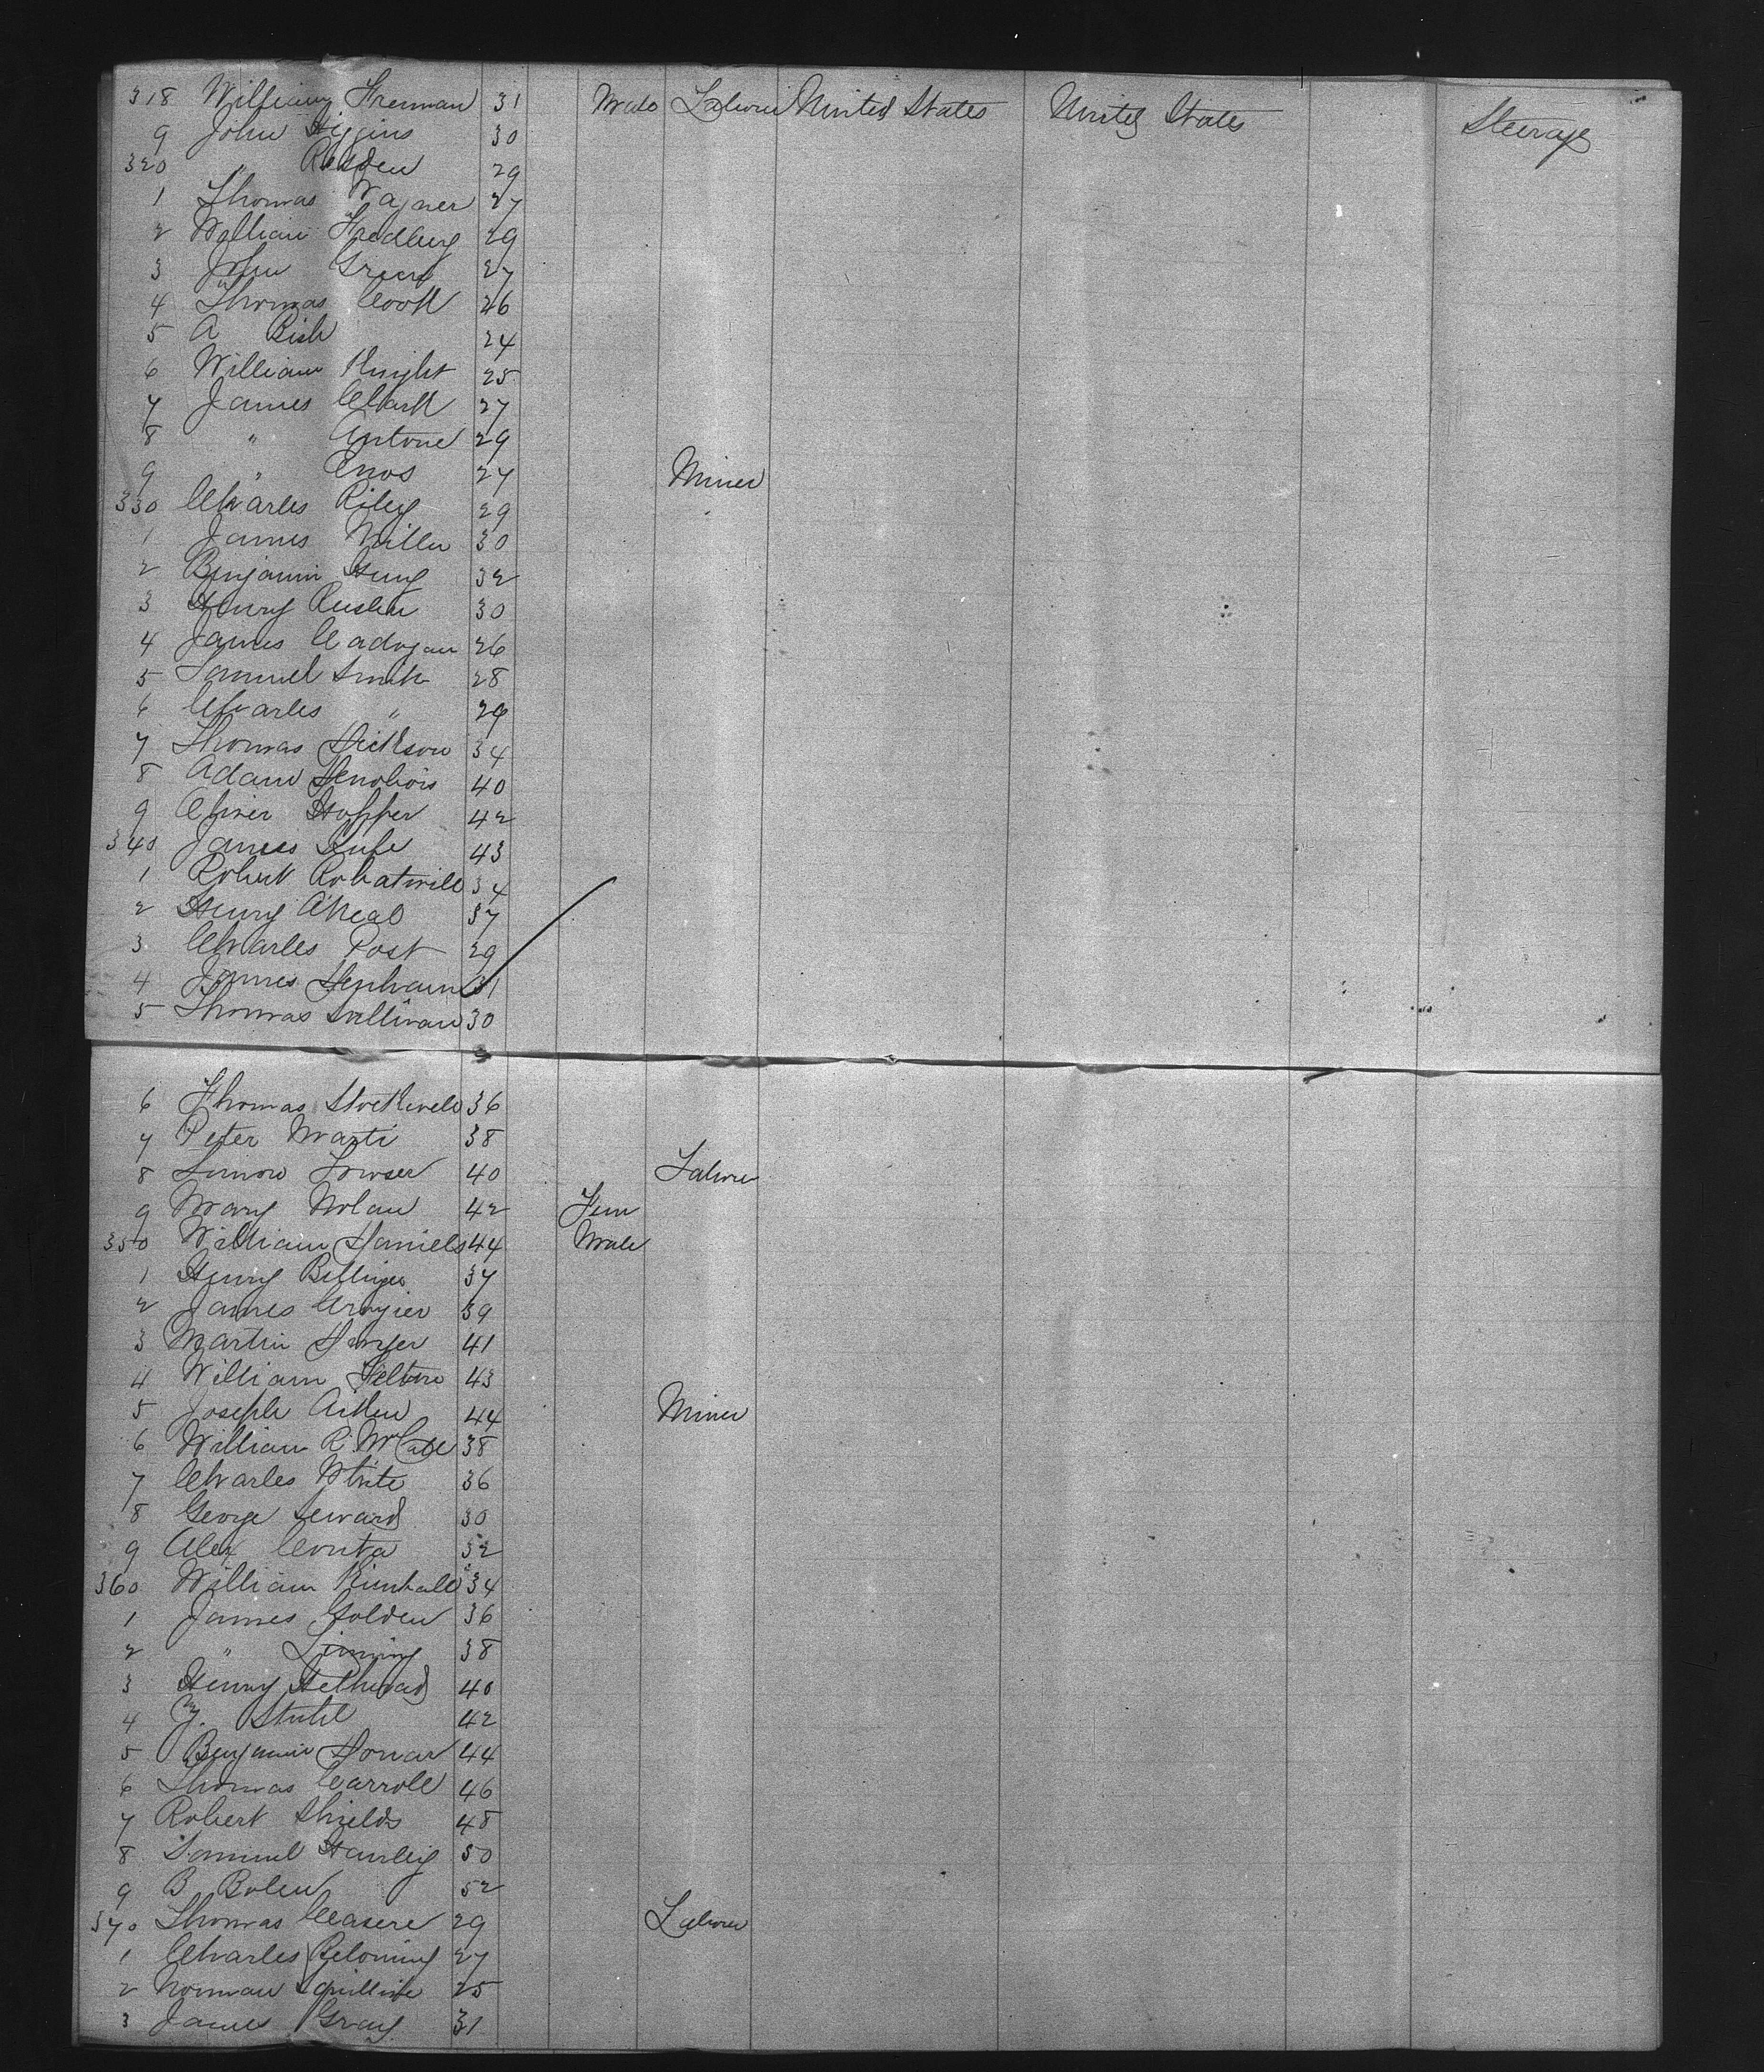 318 William Freeman 31 Male Laborer United States United States Steerage
9 John Higgins 30
320 " 29
1 Thomas Wagner 27
2 William 29
3 John Green 27
4 Thomas Cook 26
5 A 24
6 William Knight 25
7 James Clark 27
8 " Antone 29
9 " Enos 27 Miner
330 Charles Riley 29
1 James Miller 30
2 Benjamin 32
3 Henry 30
4 James Cadogan 26
5 Samuel Smith 28
6 Charles " 29
7 Thomas Dickson 34
8 Adam 40
9 Hopper 42
340 James 43
1 Robert 34
2 Henry O'Neal 37
3 Charles Post 29
4 James Denham 31
5 Thomas Sullivan 30
6 Thomas Stockwell 36
7 Peter Marti 38
8 Simon 40 Laborer
9 Mary Nolan 42 Fem
350 William Daniels 44 Male
1 Henry Billings 37
2 James 39
3 Martin Dwyer 41
4 William Felton 43
5 Joseph Aitken 44 Miner
6 William R. McCabe 38
7 Charles White 36
8 George Seward 30
9 Alex Conta 32
360 William Kimball 34
1 James Golden 36
2 " 38
3 Henry 40
4 42
5 Benjamin 44
6 Thomas Carroll 46
7 Robert Shields 48
8 Samuel Hawley 50
9 B Bolen 52
370 Thomas 29 Laborer
1 Charles 27
2 Norman 25
3 James Gray 31